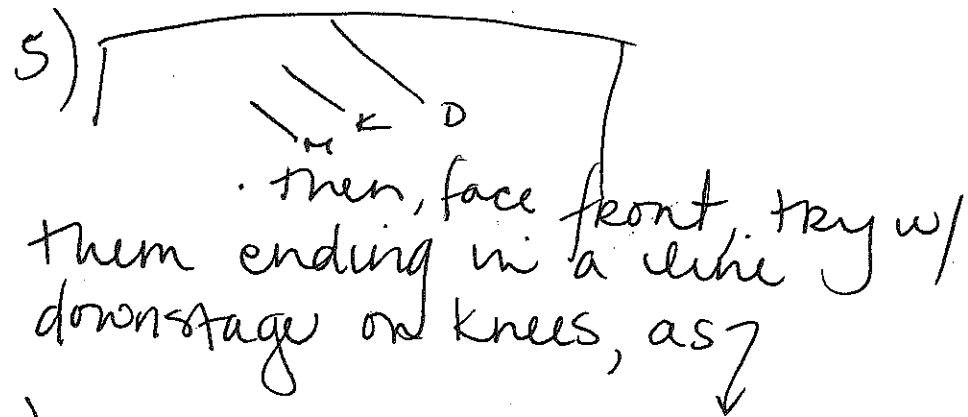 5)
M K D
. then, face front, try w/
them ending in a line
downstage on knees, as